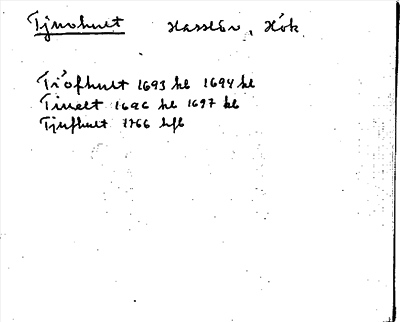 Tjuvhult Hasslöv, Hök
Tiófhult 1693 kl 1694 kl
Tiuelt 1696 kl 1697 kl
Tjufhult 1766 hfl